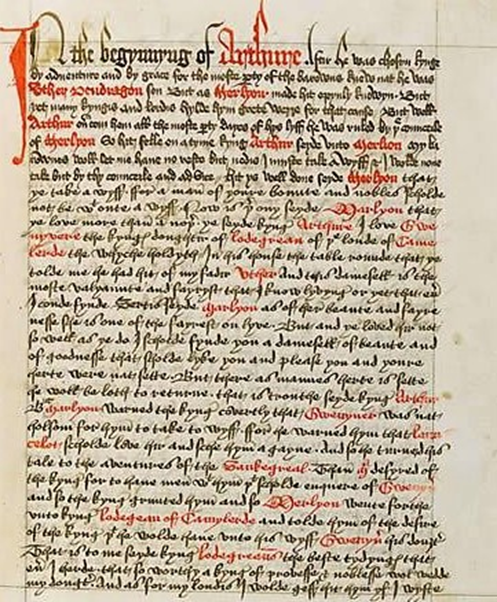 In the begynnyng of Arthure Afor he was chosyn kynge
by adventure and by grace for the moste party of the barowns knew nat he was
Uther Pendragon son But as Merlyon made hit opynly knowyn But
yet many kyngis and lordis hylde hym grete werre for that cause But well
Arthur overcom hem all the moste party dayes of hys lyff he was ruled by the counceile
of Merlyon So hit felle on a tyme kyng Arthur seyde unto Merlion My
barownes woll let me have no reste but nedis I muste take a wyff & I wolde none
take but by thy counceile and advice Hit ys well done seyde Merlyon that
ye take a wyff for a man of youre bounte and nobles scholde
not be without a wyff Now is þer ony seyde Marlyon that
ye love more than a noþer ye seyde kyng Arthure I love Gwe
nyvere the kynges doughtir of lodegrean of þe londe of Came
lerde the whyche holdyth in his house the table rounde that ye
tolde me he had hit of my fadir Uther And this damesell is the
moste valyaunte and fayryst that I know lyvyng or yet that ever
I coude fynde Sertis seyde Marlyon as of her beaute and fayre
nesse she is one of the fayrest on lyve But and ye loved hir not
so well as ye do I scholde fynde you a damesell of beaute and
of goodnesse that sholde lyke you and please you and youre
herte were nat sette But there as mannes herte is sette
he woll be loth to returne that is trouthe seyde kyng Arthur
But Marlyon warned the kyng covertly that Gwenyver was nat
holsom for hym to take to wyff for he warned hym that Laun
celot scholde love hir and sche hym agayne And so he turned his
tale to the aventures of the Sankegreal Than he desyred of
the kyng for to have men with hym that scholde enquere of Gwenyver
and so the kyng graunted hym and so Merlyon wente forthe
unto kyng Lodegean of Camylerde and tolde hym of the desire
of the kyng þat he wolde have unto his wyff Gwenyver his doughter
That is to me seyde kyng Lodegreauns the beste tydynges that
ever I herde that so worthy a kyng of prouesse & noblesse wol wedde
my doughter And as for my londis I wolde geff hit hym yf I wyste